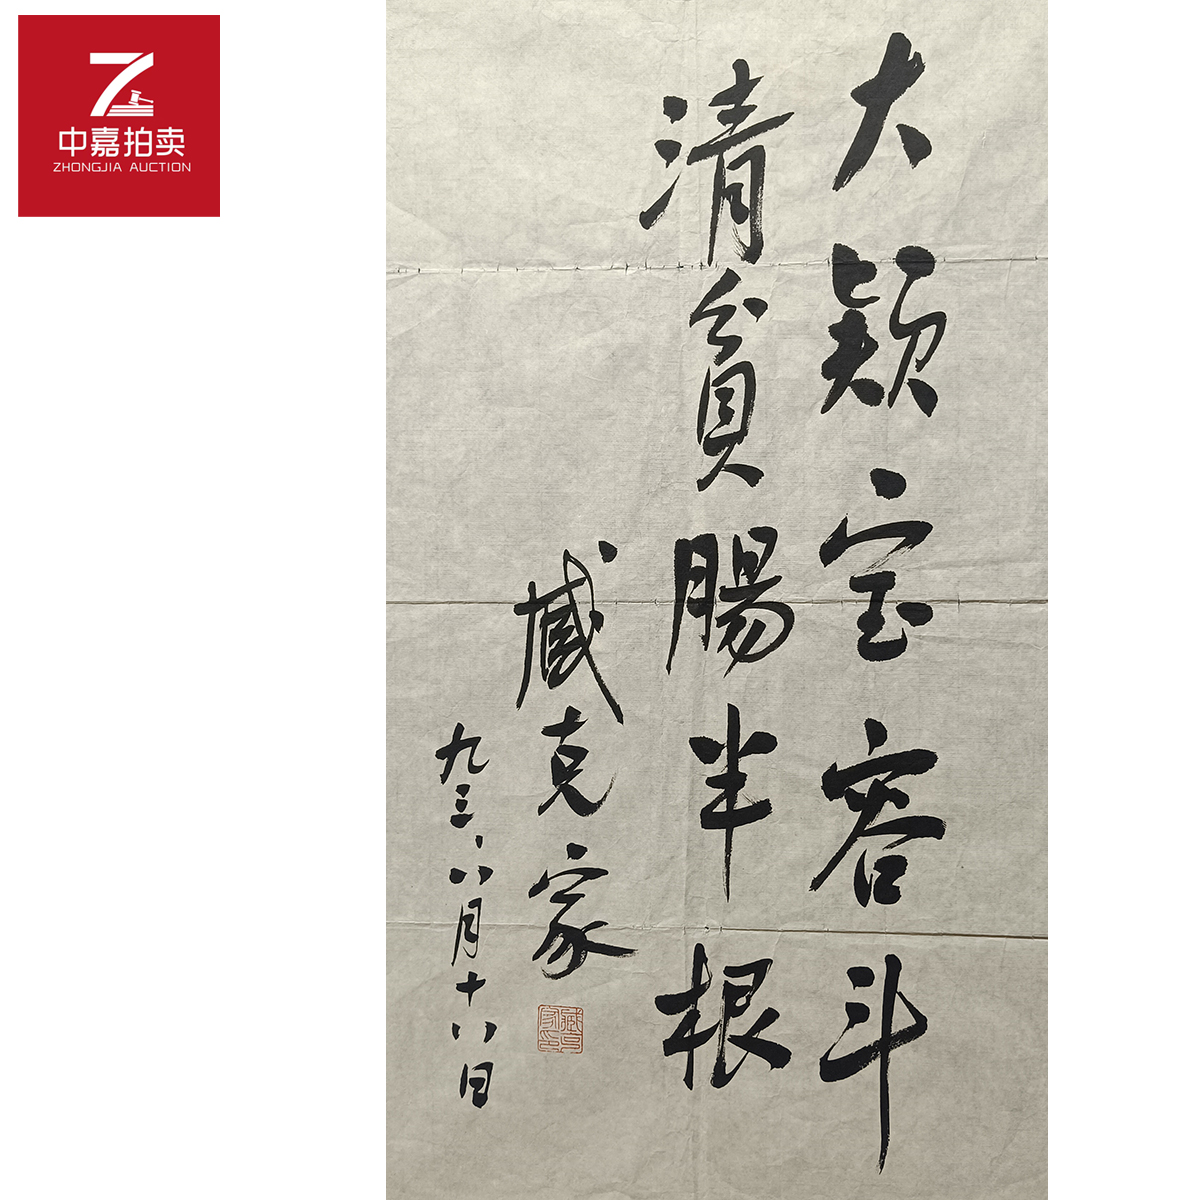 中嘉拍卖
ZHONGJIA AUCTION
大颖室容斗
清貧腸半根
臧克家
九三、八月十八日
臧克家印